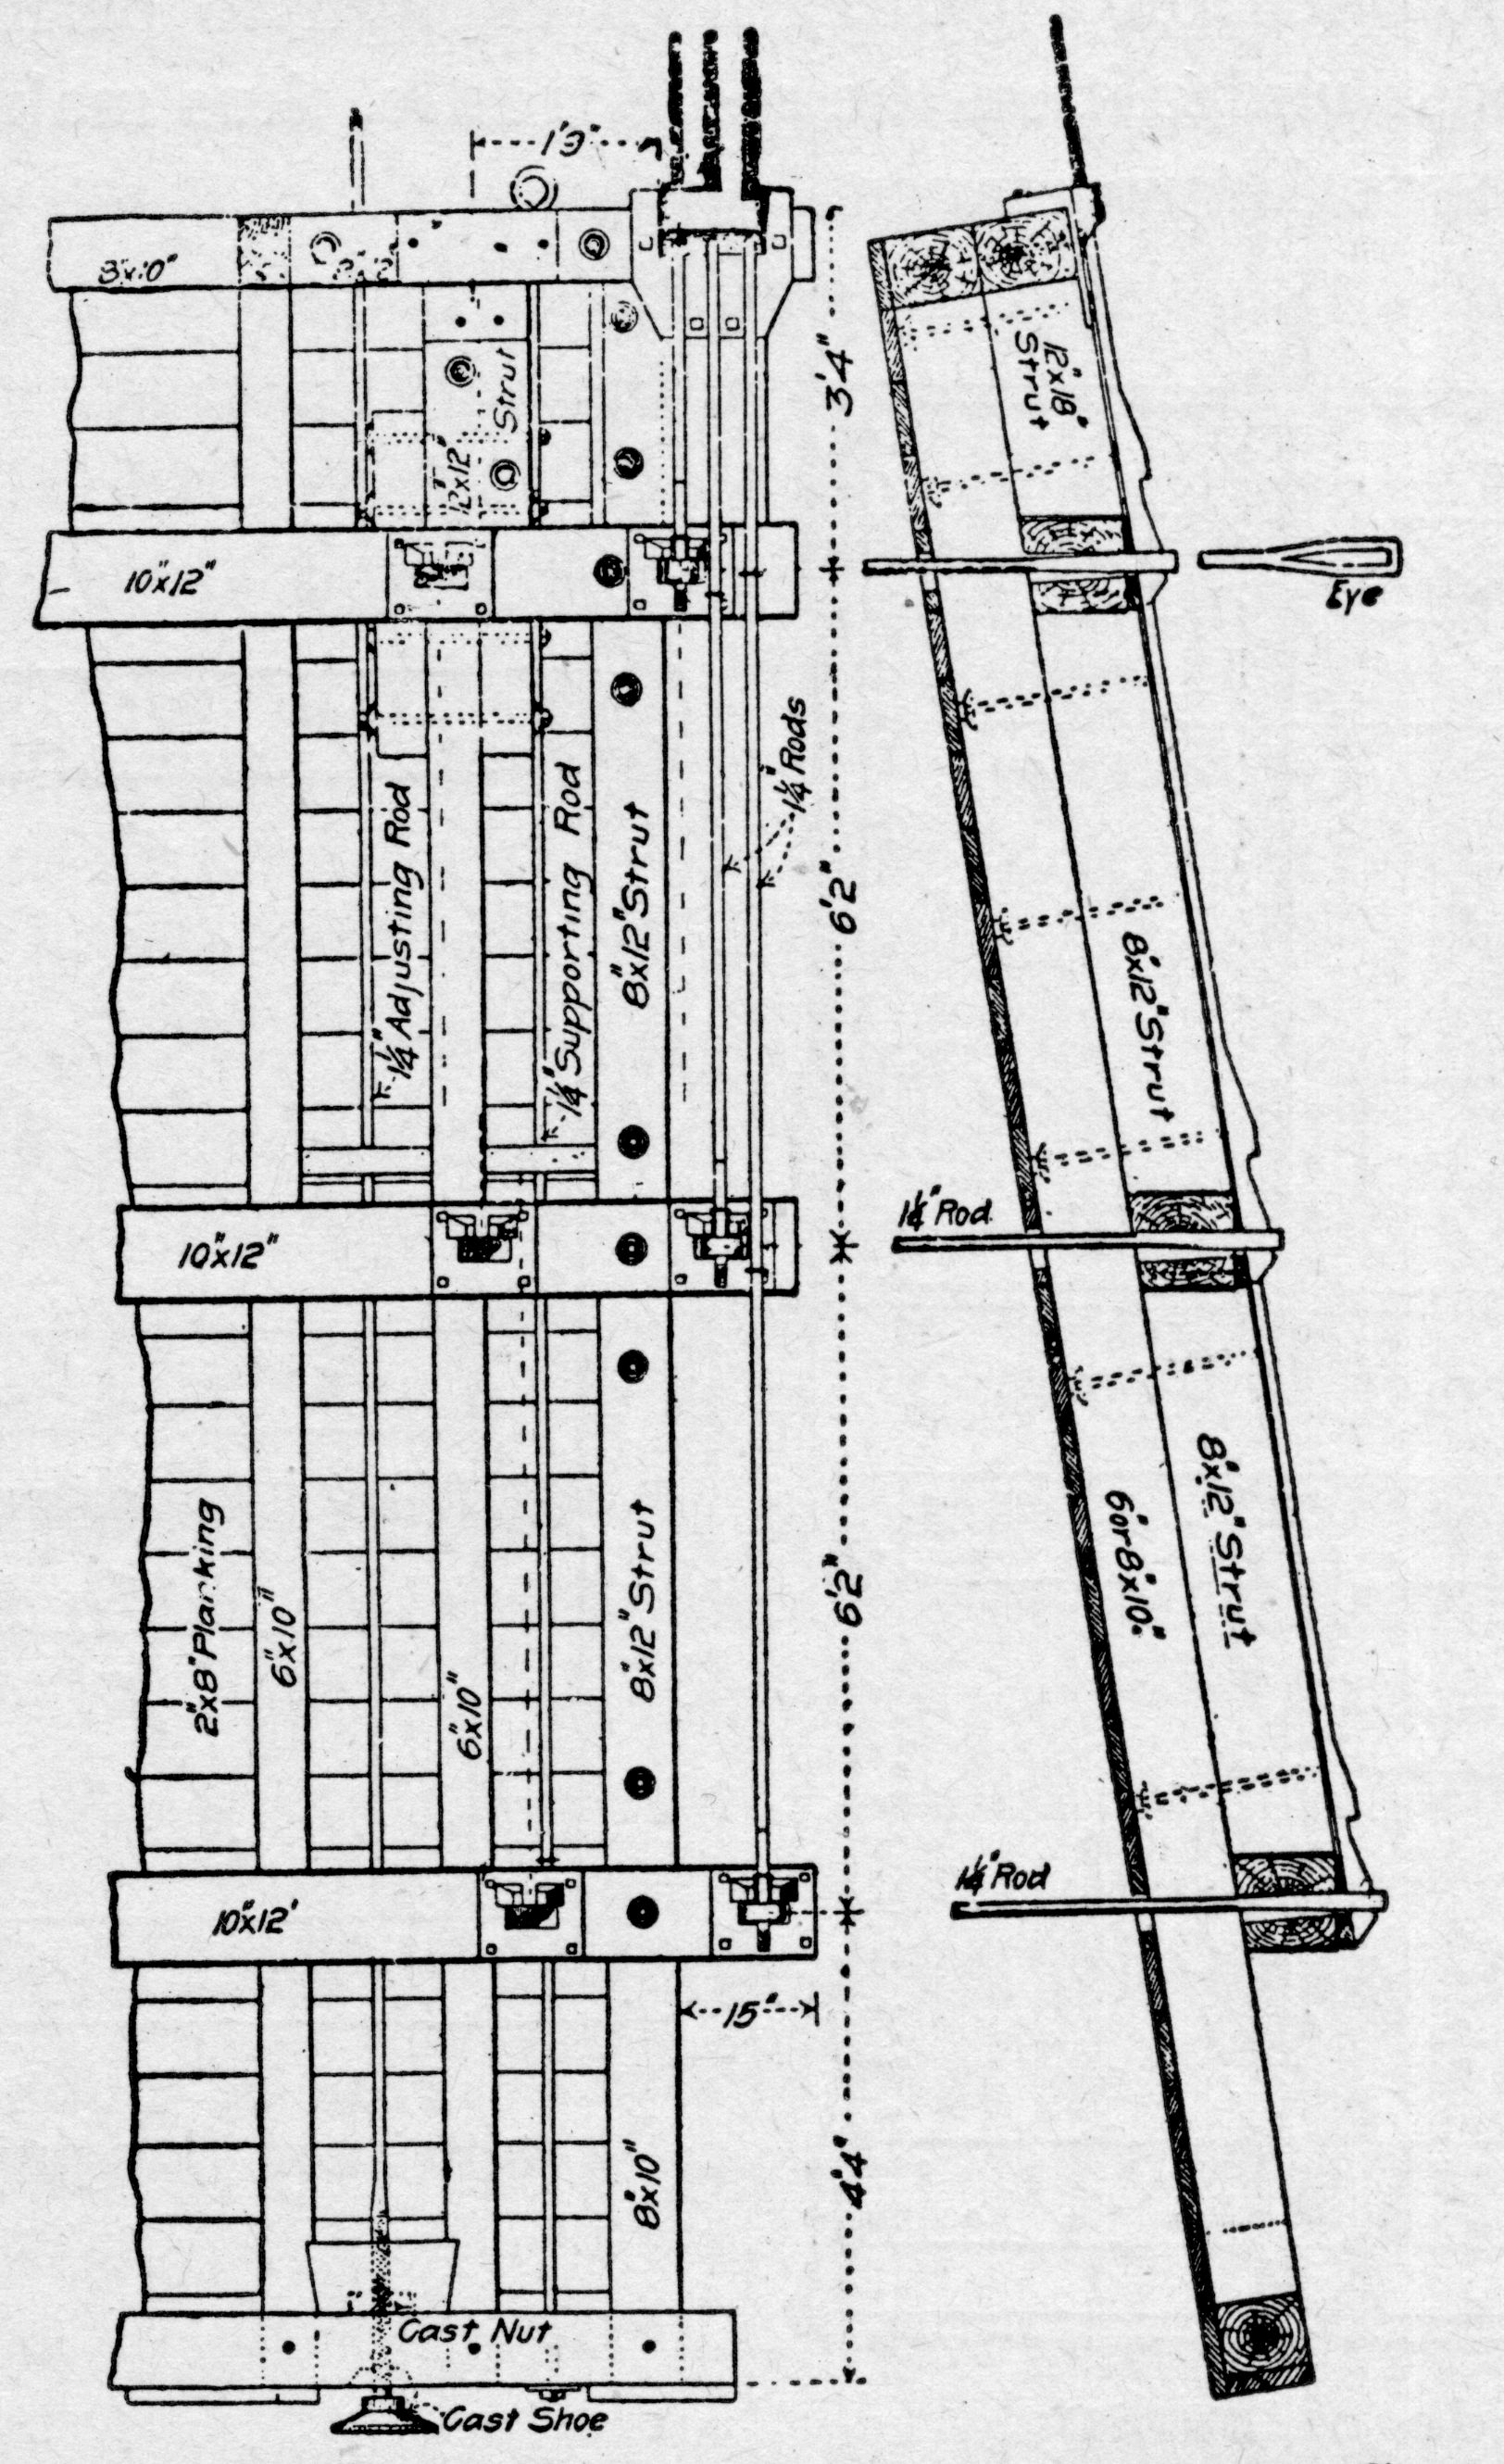 1'3"
8"x10"
12"x12"
Strut
12"x18"
Strut
3'4"
10"x12"
Eye
1¼" Rods
1¼" Adjusting Rod
1¼" Supporting Rod
8"x12" Strut
6'2"
8"x12" Strut
10"x12"
1¼" Rod
2"x8" Planking
6"x10"
6"x10"
8"x12" Strut
6'2"
6"or 8"x10"
8"x12" Strut
10"x12'
1¼" Rod
15"
8"x10"
4'4"
Cast Nut
Cast Shoe